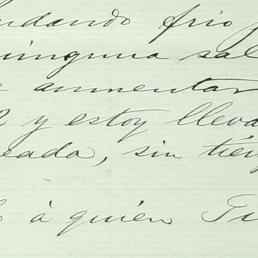 udando frio
ninguna sal
aumentar
y estoy lleva
eada, sin tien
à quien Tu